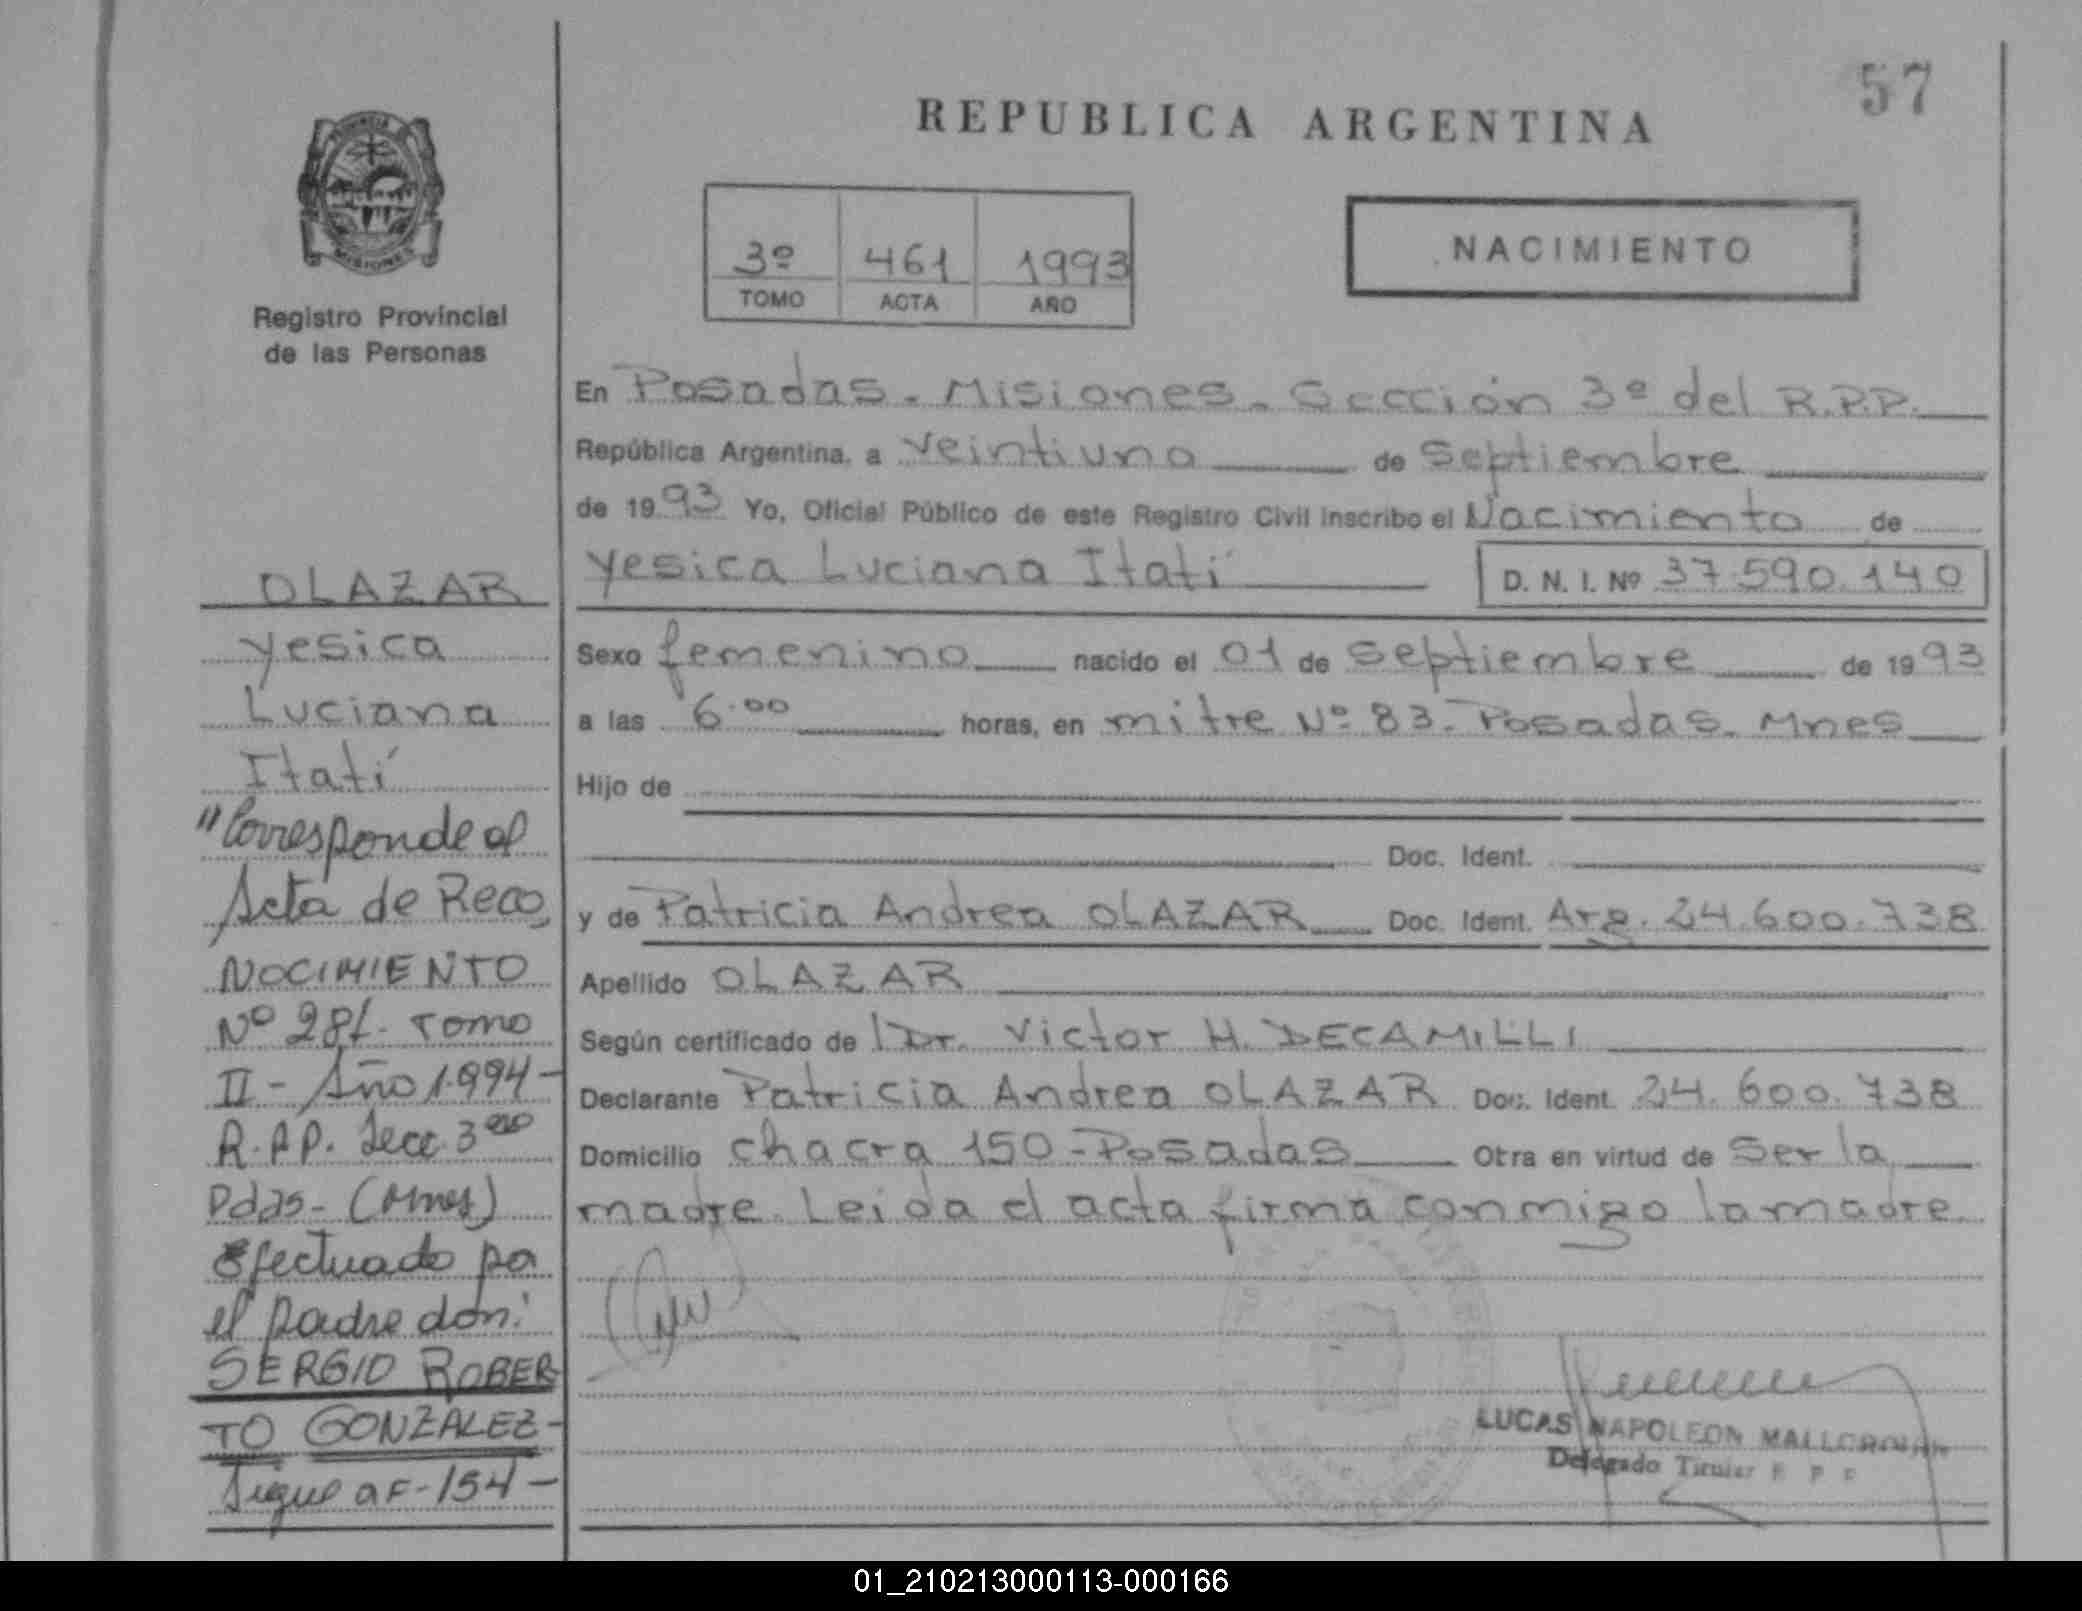 57
REPUBLICA ARGENTINA
PROVINCIA
MISIONES
Registro Provincial
de las Personas
3º 461 1993
TOMO ACTA AÑO
NACIMIENTO
En Posadas - Misiones - Sección 3º del R.P.P.
República Argentina, a veintiuno de septiembre
de 1993 Yo, Oficial Público de este Registro Civil inscribo el Nacimiento de
Yesica Luciana Itatí D. N. I. Nº 37.590.140
Sexo femenino nacido el 01 de septiembre de 1993
a las 6.00 horas, en mitre Nº 83. Posadas. Mnes
Hijo de
Doc. Ident.
y de Patricia Andrea OLAZAR Doc. Ident. Arg. 24.600.738
Apellido OLAZAR
Según certificado de Dr. Victor H. DECAMILLI
Declarante Patricia Andrea OLAZAR Doc. Ident. 24.600.738
Domicilio chacra 150 - Posadas Otra en virtud de ser la
madre. Leida el acta firma conmigo la madre
LUCAS NAPOLEON
Delegado Titular R P P
OLAZAR
Yesica
Luciana
Itatí
"Corresponde al
Acta de Reco
NOCIMIENTO
Nº 281 - Tomo
II - Año 1.994 -
R.P.P. Secc. 3era
Pdas - (Mnes)
Efectuado por
el padre don:
SERGIO ROBER
TO GONZALEZ -
Sigue a F - 154 -
01_210213000113-000166